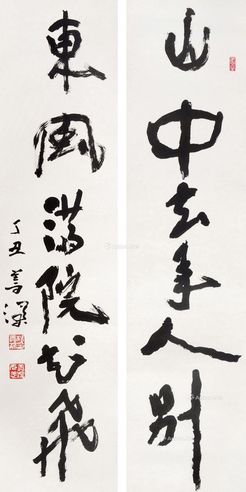 山中去年人别
東風滿院花飛
丁丑 善深